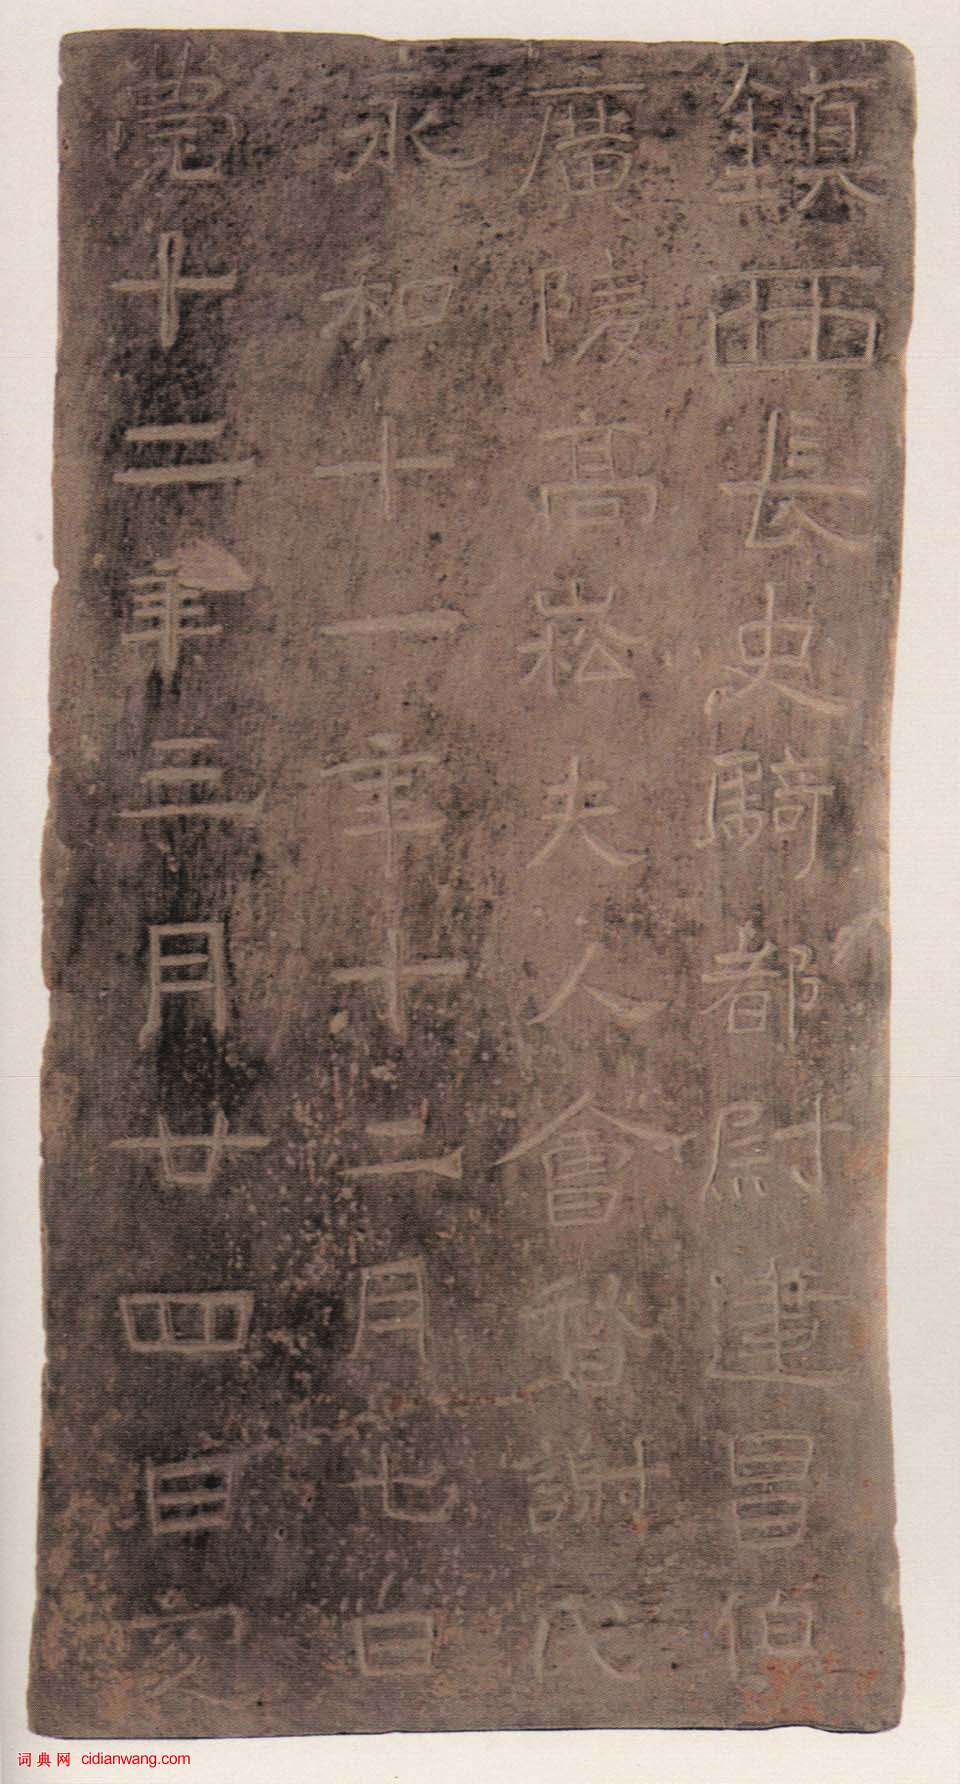 鎮西長史騎都尉建昌伯
廣陵高崧夫人會稽謝氏
永和十一年十二月七日
薨十二年三月廿四日窆
词典网 cidianwang.com